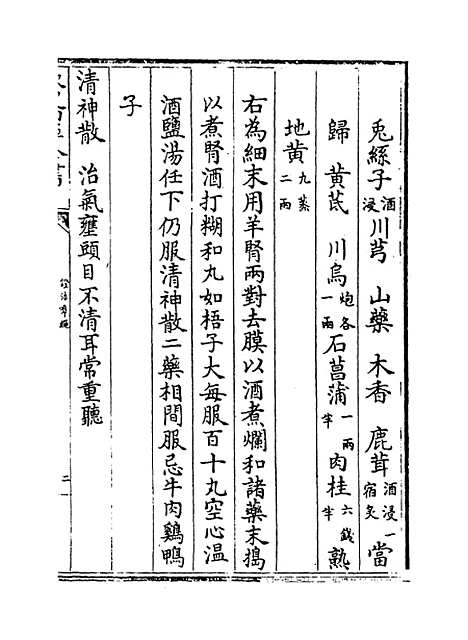 兎絲子酒浸川芎 山藥 木香 鹿茸酒浸一宿炙當
歸 黄芪 川烏炮各一兩石菖蒲一兩半肉桂六錢半熟
地黄九蒸二兩
右為細末用羊腎兩對去膜以酒煮爛和諸藥末搗
以煮腎酒打糊和丸如梧子大每服百十丸空心温
酒鹽湯任下仍服清神散二藥相間服忌牛肉鷄鴨
子
清神散 治氣壅頭目不清耳常重聽